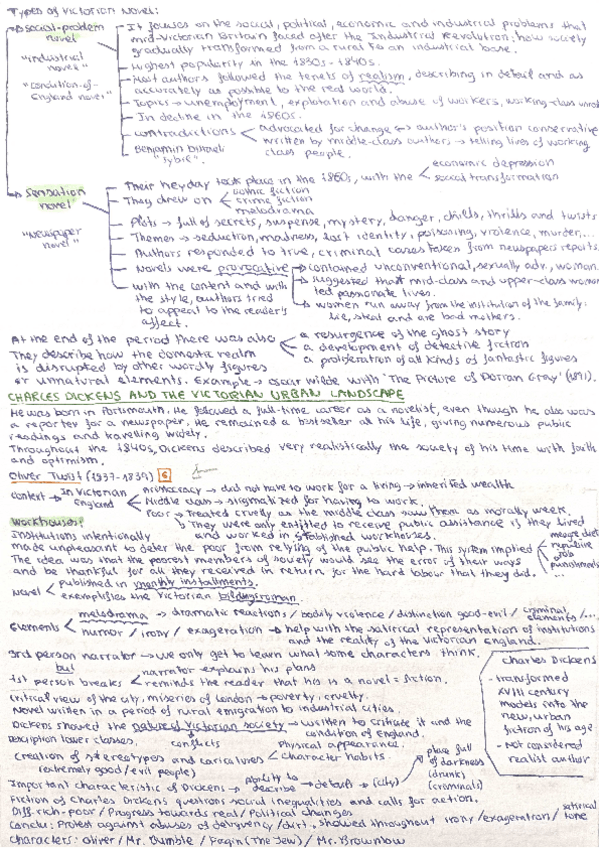 TYPES OF VICTORIAN NOVEL:
social-problem novel
"industrial novel"
"condition-of-England novel"
It focuses on the social, political, economic and industrial problems that
mid-Victorian Britain faced after the Industrial Revolution; how society
gradually transformed from a rural to an industrial base.
Highest popularity in the 1830s - 1840s.
Most authors followed the tenets of realism, describing in detail and as
accurately as possible to the real world.
Topics → unemployment, explotation and abuse of workers, working-class
In decline in the 1860s.
contradictions
advocated for change ↔ author's position conservative
written by middle-class authors → telling lives of working
class people.
Benjamin Disraeli "Sybil".
Sensation novel
"Newspaper novel"
Their heyday took place in the 1860s, with the
economic depression
social transformation
They drew on
gothic fiction
crime fiction
melodrama
Plots → full of secrets, suspense, mystery, danger, chills, thrills and twists
Themes → seduction, madness, lost identity, poisoning, violence, murder,...
Authors responded to true, criminal cases taken from newspapers reports.
Novels were provocative
contained unconventional, sexually adv. woman.
suggested that mid-class and upper-class women
led passionate lives.
women run away from the institution of the family:
lie, steal and are bad mothers.
with the content and with
the style, authors tried
to appeal to the reader's
affect.
At the end of the period there was also
a resurgence of the ghost story
a development of detective fiction
a proliferation of all kinds of fantastic figures
They describe how the domestic realm
is disrupted by other wordly figures
or unnatural elements. Example → Oscar Wilde with 'The Picture of Dorian Gray' (1891).
CHARLES DICKENS AND THE VICTORIAN URBAN LANDSCAPE
He was born in Portsmouth. He followed a full-time career as a novelist, even though he also was
a reporter for a newspaper. He remained a bestseller all his life, giving numerous public
readings and travelling widely.
Throughout the 1840s, Dickens described very realistically the society of his time with faith
and optimism.
Oliver Twist (1837-1839) 6
context → In Victorian England
Aristocracy → did not have to work for a living → inherited wealth
Middle class → stigmatized for having to work.
Poor → Treated cruelly as the middle class saw them as morally weak.
They were only entitled to receive public assistance if they lived
and worked in stablished workhouses.
Workhouses?
Institutions intentionally
made unpleasant to deter the poor from relying of the public help. This system implied
meagre diet
repetitive job
punishments
...
The idea was that the poorest members of society would see the error of their ways
and be thankful for all they received in return for the hard labour that they did.
Novel
published in monthly installments.
exemplifies the Victorian bildungsroman.
Elements
melodrama → dramatic reactions / bodily violence / distinction good-evil / criminal elements /...
humor / irony / exageration → help with the satirical representation of institutions
and the reality of the Victorian England.
3rd person narrator → we only get to learn what some characters think.
but
1st person breaks
narrator explains his plans
reminds the reader that his is a novel = fiction.
Critical view of the city, miseries of London → poverty, cruelty.
Novel written in a period of rural emigration to industrial cities.
Dickens showed the nature of Victorian society → written to critizate it and the
condition of England.
conflicts
Description lower classes.
Creation of stereotypes and caricatures
(extremely good/evil people)
Physical appearance.
character habits.
Important characteristic of Dickens → ability to describe → details → (city)
place full of darkness
(drunk)
(criminals)
Fiction of Charles Dickens questions social inequalities and calls for action.
Diff. rich-poor / Progress towards real / Political changes
Conclu: Protest against abuses of delinquency / dirt, showed throughout irony / exageration / satirical tone
Characters: Oliver / Mr. Bumble / Fagin (The Jew) / Mr. Brownlow
Charles Dickens
- transformed
XVIII century
models into the
new, urban
fiction of his age
- Not considered
realist author